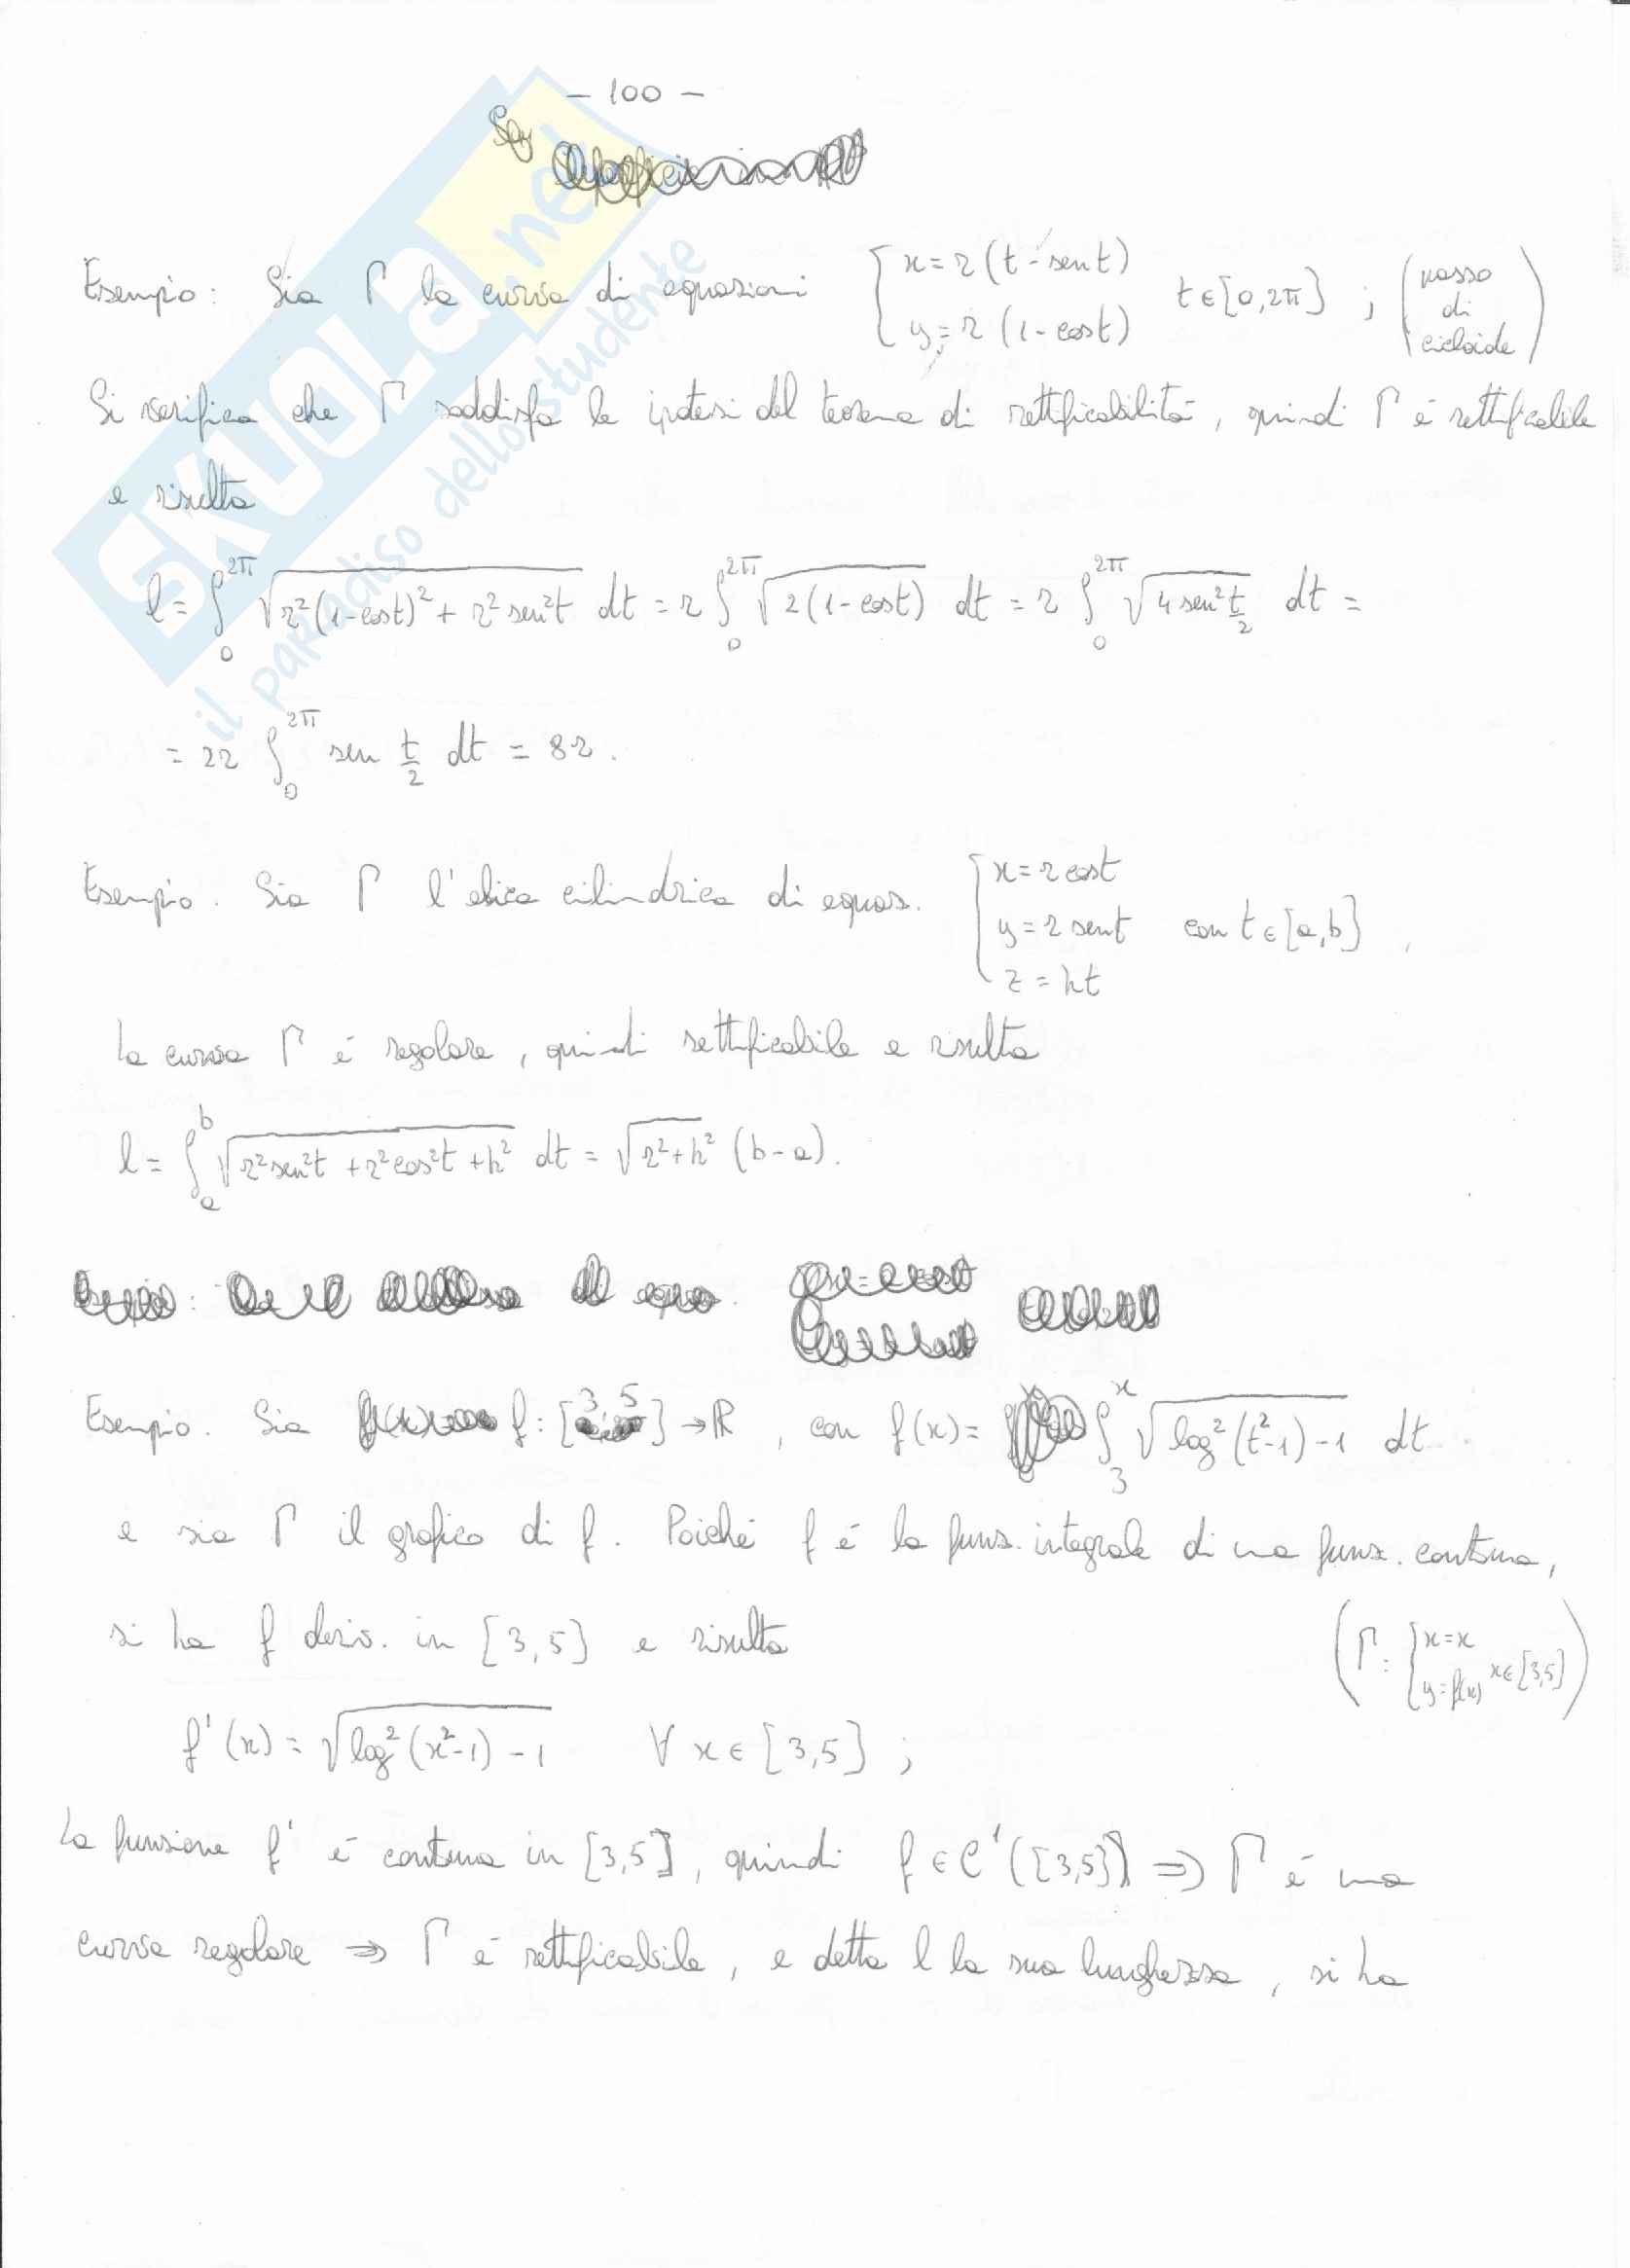 - 100 -
SKUOLA.net
il paradiso dello studente
Esempio: Sia Γ la curva di equazioni { x = r (t - sen t) y = r (1 - cos t) t ∈ [0, 2π] ; (passo di cicloide)
Si verifica che Γ soddisfa le ipotesi del teorema di rettificabilità, quindi Γ é rettificabile
e risulta
l = ∫₀^{2π} √(r²(1-cos t)² + r² sen² t) dt = r ∫₀^{2π} √(2(1-cos t)) dt = r ∫₀^{2π} √(4 sen² t/2) dt =
= 2r ∫₀^{2π} sen t/2 dt = 8r.
Esempio. Sia Γ l'elica cilindrica di equaz. { x = r cos t y = r sen t z = ht con t ∈ [a, b] ,
La curva Γ é regolare, quindi rettificabile e risulta
l = ∫ₐ^b √(r² sen² t + r² cos² t + h²) dt = √(r² + h²) (b - a).
Esempio. Sia f: [3, 5] → ℝ , con f(x) = ∫₃^x √(log² (t²-1) - 1) dt.
e sia Γ il grafico di f. Poiché f é la funz. integrale di una funz. continua,
si ha f deriv. in [3, 5] e risulta (Γ: { x = x y = f(x) x ∈ [3, 5])
f'(x) = √(log² (x²-1) - 1) ∀ x ∈ [3, 5] ;
La funzione f' é continua in [3, 5], quindi f ∈ C¹([3, 5]) ⇒ Γ é una
curva regolare ⇒ Γ é rettificabile, e detta l la sua lunghezza, si ha